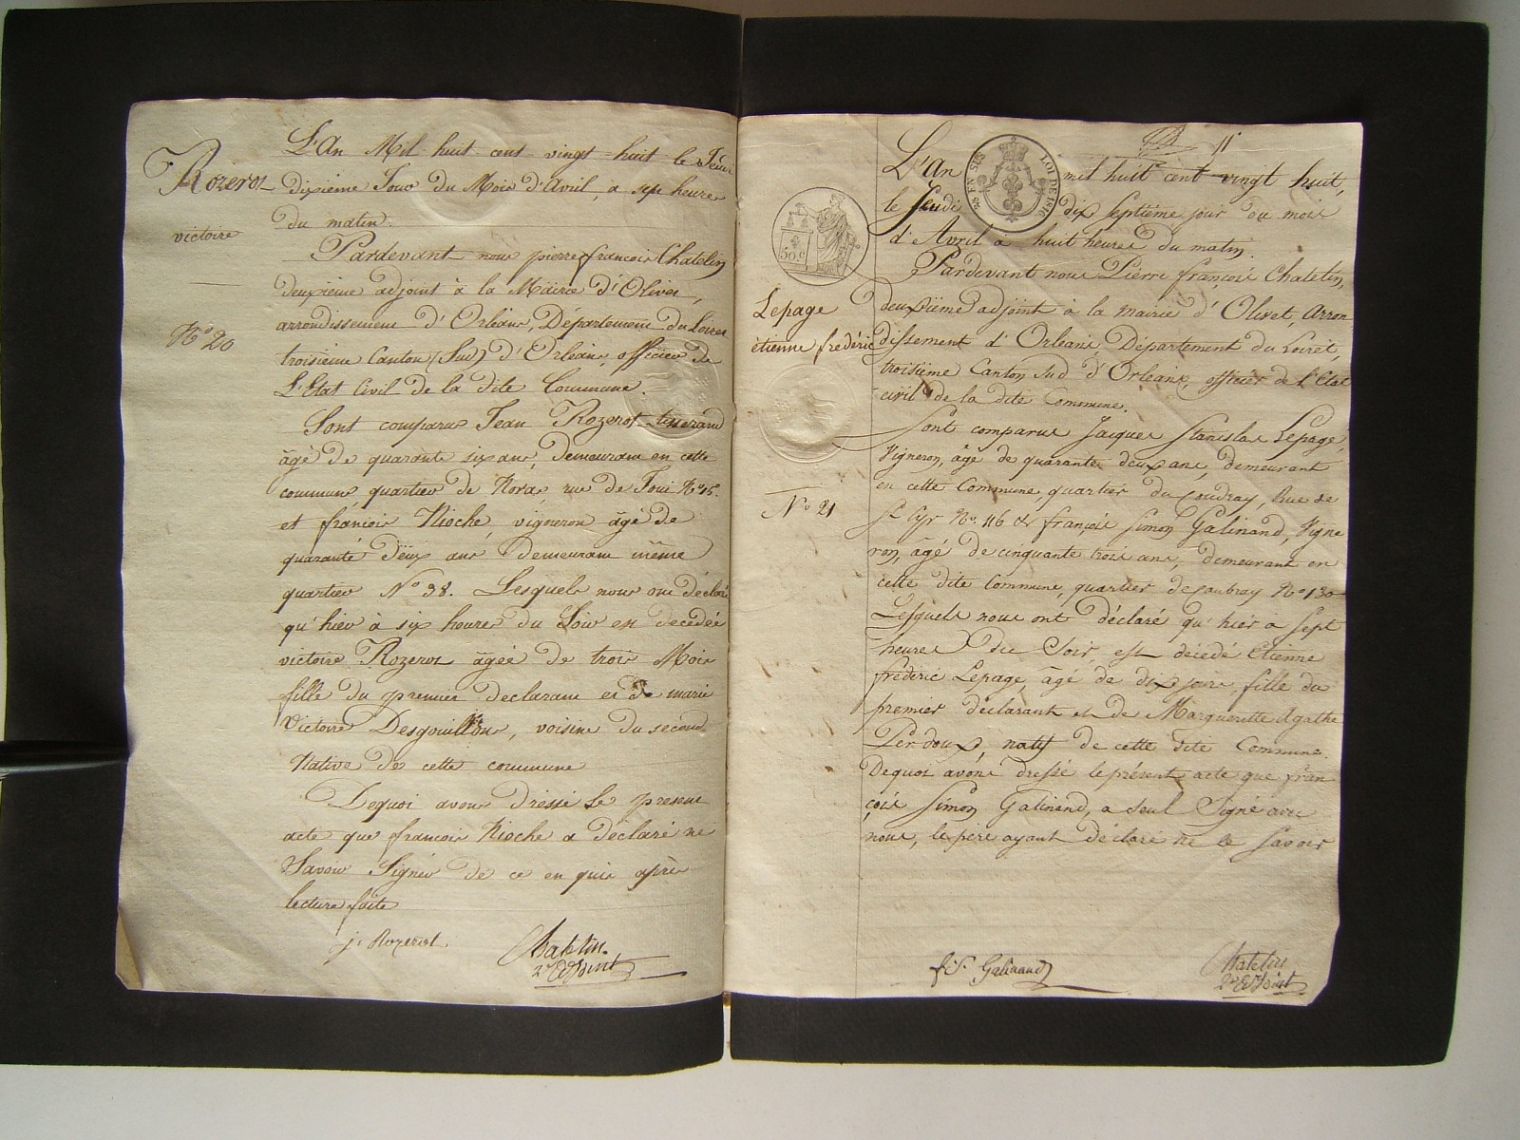 Rozerot
victoire
N.º 20
L'An Mil huit cent vingt huit le Jeudi
dixième Jour du Mois d'Avril, a sept heures
du matin.
Pardevant nous pierre francois Chatelin
deuxieme adjoint à la Mairie d'Olivet,
arrondissement d'Orléans, Département du Loiret
troisieme Canton (Sud) d'Orleans, officier de
L'Etat Civil de la dite Commune.
Sont comparus Jean Rozerot tisserand
âgé de quarante six ans, demeurant en cette
commune, quartier de rue de N.º 15.
et françois Rioche, vigneron âgé de
quarante deux ans demeurant même
quartier N.º 38. Lesquels nous ont déclaré
qu'hier à six heures du Soir est décédée
victoire Rozerot âgée de trois Mois
fille du premier declarant et de marie
Victoire Desgouillons, voisine du second
Native de cette commune
Dequoi avons dressé le present
acte que francois Rioche a déclaré ne
Savoir Signer de ce enquis après
lecture faite
j. Rozerot.
Chatelin.
2e Adjoint
11
L'An mil huit cent vingt huit,
le Jeudi dix septième jour du mois
d'Avril à huit heures du matin.
Pardevant nous Pierre françois Chatelin,
deuxième adjoint à la mairie d'Olivet, Arron
dissement d'Orleans, Département du Loiret,
troisième Canton Sud d'Orleans, officier de l'Etat
civil de la dite Commune.
50.c
LOI DE 1816
Lepage
etienne frédéric
N.º 21
Sont comparus Jacques Stanislas Lepage,
Vigneron, âgé de quarante deux ans, demeurant
en cette Commune, quartier du Coudray, Rue de
St Cyr N.º 116 & françois Simon Galinand, Vigne
ron, âgé de cinquante trois ans, demeurant en
cette dite Commune, quartier de N.º 130
Lesquels nous ont déclaré qu'hier à Sept
heures du Soir, est décédé Etienne
frédéric Lepage, âgé de dix jours, fille du
premier déclarant et de Marguerite Agathe
Perdoux, natif de cette dite Commune.
Dequoi avons dressé le présent acte que fran
çois Simon Galinand, a seul Signé avec
nous, le père ayant déclaré ne le Savoir
f. S. Galinand
Chatelin
2e Adjoint